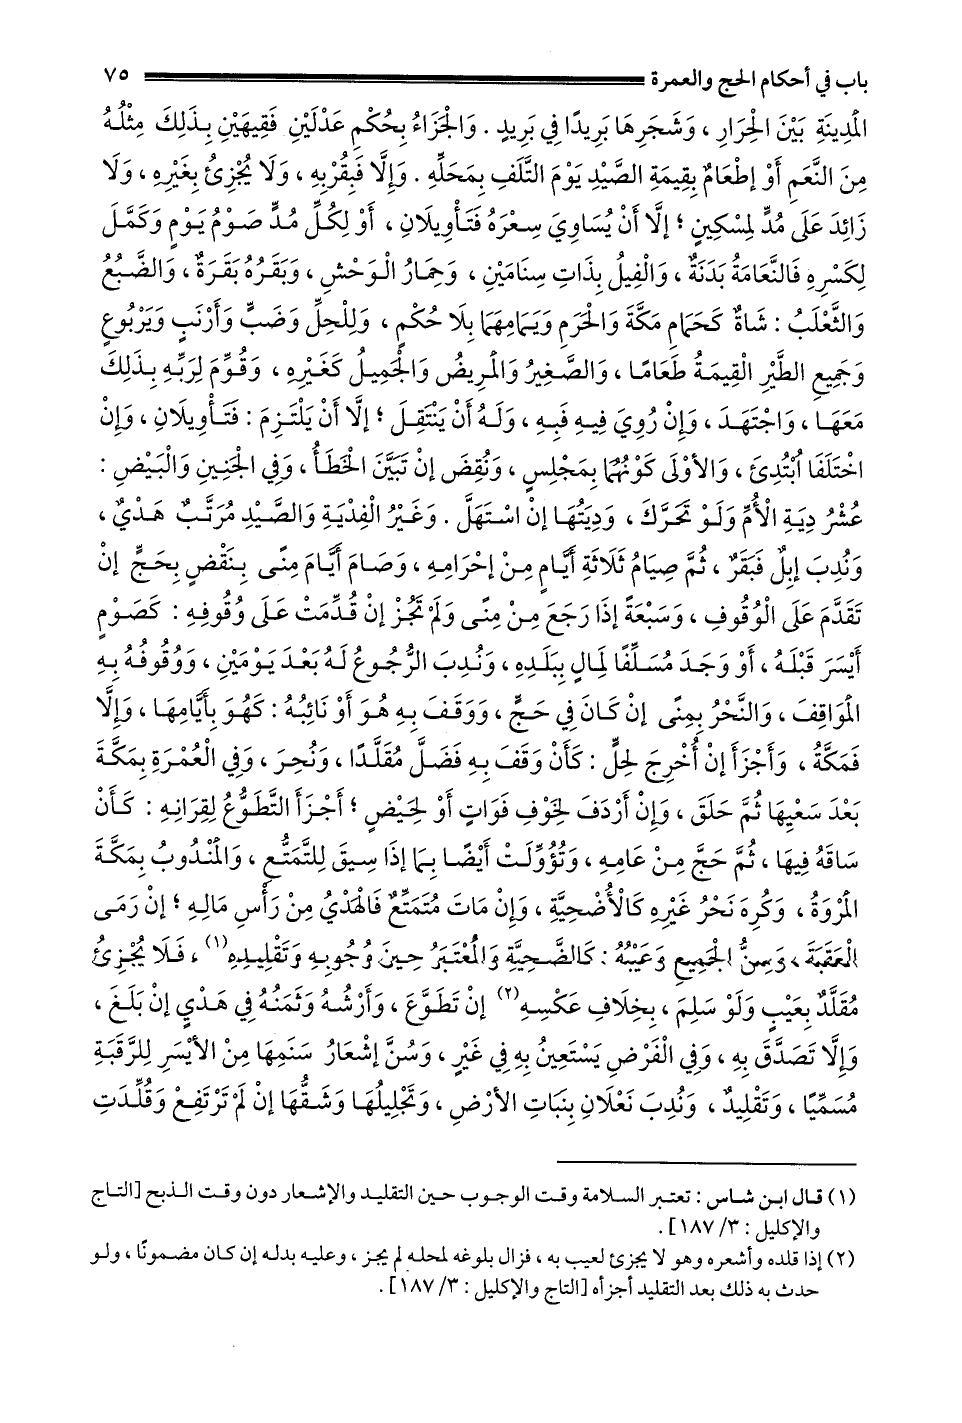 باب في أحكام الحج والعمرة ٧٥
المَدِينَةِ بَيْنَ الْحِرَارِ ، وَشَجَرِهَا بَرِيدًا فِي بَرِيدٍ . وَالْجَزَاءُ بِحُكْمِ عَدْلَيْنِ فَقِيهَيْنِ بِذَلِكَ مِثْلُهُ
مِنَ النَّعَمِ أَوْ إِطْعَامٌ بِقِيمَةِ الصَّيْدِ يَوْمَ التَّلَفِ بِمَحَلِّهِ . وَإِلَّا فَبِقُرْبِهِ ، وَلَا يُجْزِئُ بِغَيْرِهِ ، وَلَا
زَائِدَ عَلَى مُدٍّ لِمِسْكِينٍ ؛ إِلَّا أَنْ يُسَاوِيَ سِعْرَهُ فَتَأْوِيلَانِ ، أَوْ لِكُلِّ مُدٍّ صَوْمُ يَوْمٍ وَكَمَّلَ
لِكَسْرِهِ فَالنَّعَامَةُ بَدَنَةٌ ، وَالْفِيلُ بِذَاتِ سِنَامَيْنِ ، وَحِمَارُ الْوَحْشِ ، وَبَقَرُهُ بَقَرَةٌ ، وَالضَّبُعُ
وَالثَّعْلَبُ : شَاةٌ كَحَمَامِ مَكَّةَ وَالْحَرَمِ وَيَمَامِهِمَا بِلَا حُكْمٍ ، وَلِلْحِلِّ وَضَبٍّ وَأَرْنَبٍ وَيَرْبُوعٍ
وَجَمِيعِ الطَّيْرِ الْقِيمَةُ طَعَامًا ، وَالصَّغِيرُ وَالمَرِيضُ وَالْجَمِيلُ كَغَيْرِهِ ، وَقُوِّمَ لِرَبِّهِ بِذَلِكَ
مَعَهَا ، وَاجْتَهَدَ ، وَإِنْ رُوِيَ فِيهِ فَبِهِ ، وَلَهُ أَنْ يَنْتَقِلَ ؛ إِلَّا أَنْ يَلْتَزِمَ : فَتَأْوِيلَانِ ، وَإِنْ
اخْتَلَفَا ابْتُدِئَ ، وَالأَوْلَى كَوْنُهُمَا بِمَجْلِسٍ ، وَنُقِضَ إِنْ تَبَيَّنَ الْخَطَأُ ، وَفِي الْجَنِينِ وَالْبَيْضِ :
عُشْرُ دِيَةِ الأُمِّ وَلَوْ تَحَرَّكَ ، وَدِيَتُهَا إِنْ اسْتَهَلَّ . وَغَيْرُ الْفِدْيَةِ وَالصَّيْدِ مُرَتَّبٌ هَدْيٌ ،
وَنُدِبَ إِبِلٌ فَبَقَرٌ ، ثُمَّ صِيَامُ ثَلَاثَةِ أَيَّامٍ مِنْ إِحْرَامِهِ ، وَصَامَ أَيَّامَ مِنًى بِنَقْضٍ بِحَجٍّ إِنْ
تَقَدَّمَ عَلَى الْوُقُوفِ ، وَسَبْعَةً إِذَا رَجَعَ مِنْ مِنًى وَلَمْ تَجُزْ إِنْ قُدِّمَتْ عَلَى وُقُوفِهِ : كَصَوْمٍ
أَيْسَرَ قَبْلَهُ ، أَوْ وَجَدَ مُسَلِّفًا لِمَالٍ بِبَلَدِهِ ، وَنُدِبَ الرُّجُوعُ لَهُ بَعْدَ يَوْمَيْنِ ، وَوُقُوفُهُ بِهِ
المَوَاقِفَ ، وَالنَّحْرُ بِمِنًى إِنْ كَانَ فِي حَجٍّ ، وَوَقَفَ بِهِ هُوَ أَوْ نَائِبُهُ : كَهُوَ بِأَيَّامِهَا ، وَإِلَّا
فَمَكَّةُ ، وَأَجْزَأَ إِنْ أُخْرِجَ لِحِلٍّ : كَأَنْ وَقَفَ بِهِ فَضَلَّ مُقَلَّدًا ، وَنُحِرَ ، وَفِي الْعُمْرَةِ بِمَكَّةَ
بَعْدَ سَعْيِهَا ثُمَّ حَلَقَ ، وَإِنْ أَرْدَفَ لِخَوْفِ فَوَاتٍ أَوْ لِحَيْضٍ ؛ أَجْزَأَ التَّطَوُّعُ لِقِرَانِهِ : كَأَنْ
سَاقَهُ فِيهَا ، ثُمَّ حَجَّ مِنْ عَامِهِ ، وَتُؤُوِّلَتْ أَيْضًا بِمَا إِذَا سِيقَ لِلتَّمَتُّعِ ، وَالمَنْدُوبُ بِمَكَّةَ
المَرْوَةُ ، وَكُرِهَ نَحْرُ غَيْرِهِ كَالْأُضْحِيَّةِ ، وَإِنْ مَاتَ مُتَمَتِّعٌ فَالهَدْيُ مِنْ رَأْسِ مَالِهِ ؛ إِنْ رَمَى
الْعَقَبَةَ ، وَسِنُّ الْجَمِيعِ وَعَيْبُهُ : كَالضَّحِيَّةِ وَالمُعْتَبَرُ حِينَ وُجُوبِهِ وَتَقْلِيدِهِ(١) ، فَلَا يُجْزِئُ
مُقَلَّدٌ بِعَيْبٍ وَلَوْ سَلِمَ ، بِخِلَافِ عَكْسِهِ(٢) إِنْ تَطَوَّعَ ، وَأَرْشُهُ وَثَمَنُهُ فِي هَدْيٍ إِنْ بَلَغَ ،
وَإِلَّا تَصَدَّقَ بِهِ ، وَفِي الْفَرْضِ يَسْتَعِينُ بِهِ فِي غَيْرٍ ، وَسُنَّ إِشْعَارُ سَنَمِهَا مِنْ الأَيْسَرِ لِلرَّقَبَةِ
مُسَمِّيًا ، وَتَقْلِيدٌ ، وَنُدِبَ نَعْلَانِ بِنَبَاتِ الأَرْضِ ، وَتَجْلِيلُهَا وَشَقُّهَا إِنْ لَمْ تَرْتَفِعْ وَقُلِّدَتِ
(١) قال ابن شاس : تعتبر السلامة وقت الوجوب حين التقليد والإشعار دون وقت الذبح [التاج
والإكليل : ٣/ ١٨٧] .
(٢) إذا قلده وأشعره وهو لا يجزئ لعيب به ، فزال بلوغه لمحله لم يجز ، وعليه بدله إن كان مضمونًا ، ولو
حدث به ذلك بعد التقليد أجزأه [التاج والإكليل : ٣/ ١٨٧] .